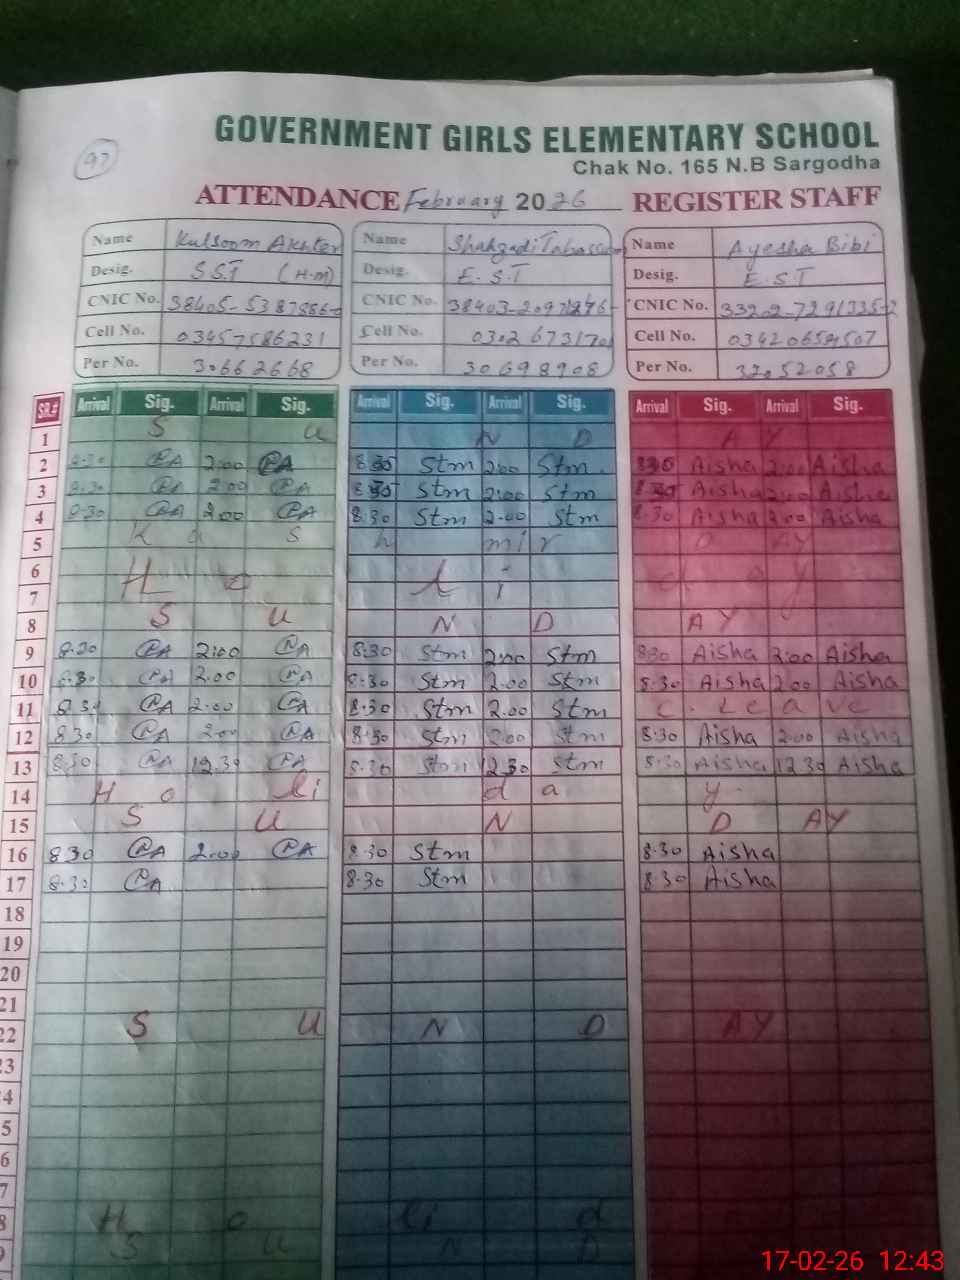 97
GOVERNMENT GIRLS ELEMENTARY SCHOOL
Chak No. 165 N.B Sargodha
ATTENDANCE February 2026 REGISTER STAFF
Name Kulsoom Akhter Name Shahzadi Tabassum Name Ayesha Bibi
Desig. SST (H.M) Desig. E.S.T Desig. E.S.T
CNIC No. CNIC No. CNIC No.
Cell No. 03457586231 Cell No. Cell No.
Per No. 30662668 Per No. 30698908 Per No. 32052058
SR.# Arrival Sig. Arrival Sig. Arrival Sig. Arrival Sig. Arrival Sig. Arrival Sig.
1 S U N D A Y
2 8:30 PA 2:00 PA 8:30 Stm 2:00 Stm 8:30 Aisha 2:00 Aisha
3 8:30 PA 2:00 PA 8:30 Stm 2:00 Stm 8:30 Aisha 2:00 Aisha
4 8:30 PA 2:00 PA 8:30 Stm 2:00 Stm 8:30 Aisha 2:00 Aisha
5 K a s h m i r D AY
6
7 H o l i d a y
8 S U N D A Y
9 8:30 PA 2:00 PA 8:30 Stm 2:00 Stm 8:30 Aisha 2:00 Aisha
10 8:30 PA 2:00 PA 8:30 Stm 2:00 Stm 8:30 Aisha 2:00 Aisha
11 8:30 PA 2:00 PA 8:30 Stm 2:00 Stm C. Leave
12 8:30 PA 2:00 PA 8:30 Stm 2:00 Stm 8:30 Aisha 2:00 Aisha
13 8:30 PA 12:30 PA 8:30 Stm 12:30 Stm 8:30 Aisha 12:30 Aisha
14 H o li d a y
15 S U N D AY
16 8:30 PA 2:00 PA 8:30 Stm 8:30 Aisha
17 8:30 PA 8:30 Stm 8:30 Aisha
18
19
20
21
22 S U N D AY
23
4
5
6
7
8 H o li d
9 S U N D
17-02-26 12:43